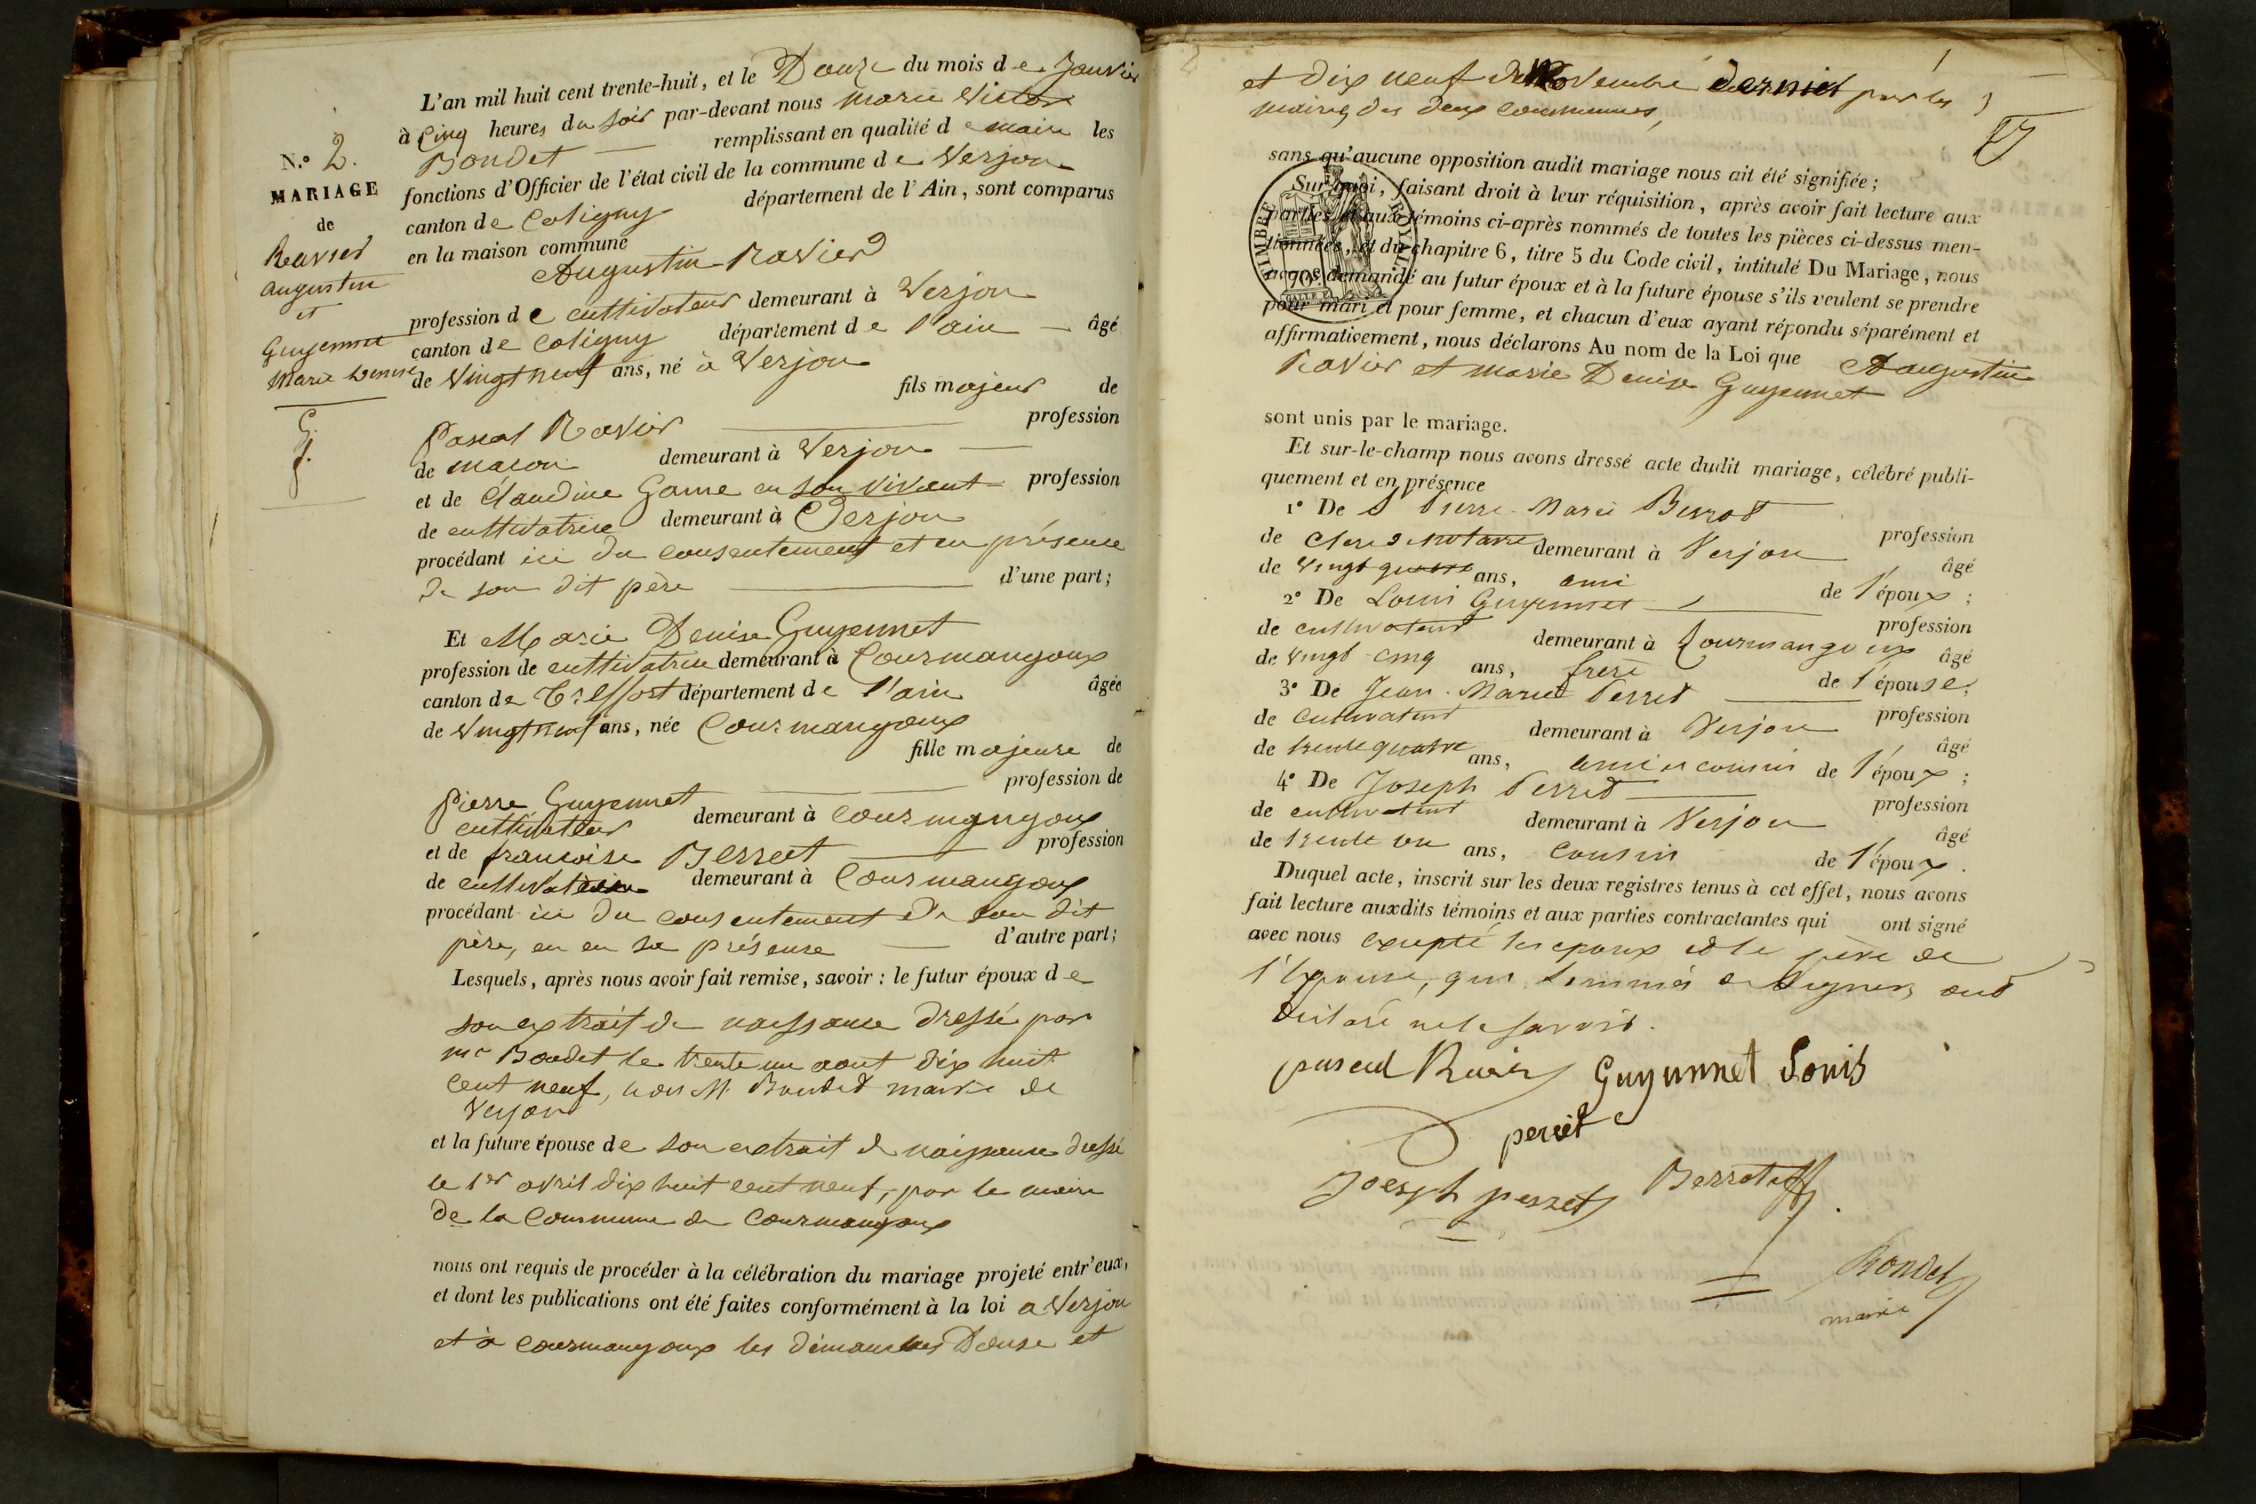 L'an mil huit cent trente-huit, et le Douze du mois de Janvier
à Cinq heures du soir par-devant nous marie Victor
Bondet remplissant en qualité de maire les
fonctions d'Officier de l'état civil de la commune de Verjon
canton de Coligny département de l'Ain, sont comparus
en la maison commune
Augustin Ravier
profession de cultivateur demeurant à Verjon
canton de Coligny département de l'ain âgé
de Vingt neuf ans, né à Verjon
fils majeur de
Pascal Ravier profession
de maçon demeurant à Verjon
et de Claudine Game en son vivant profession
de cultivatrice demeurant à Verjon
procédant ici du consentement et en présence
de son dit père d'une part;
N.° 2.
MARIAGE
de
Ravier
augustin
et
Guyennet
Marie Denise
Et Marie Denise Guyennet
profession de cultivatrice demeurant à Courmangoux
canton de Treffort département de l'ain âgée
de Vingt neuf ans, née Courmangoux
fille majeure de
Pierre Guyennet profession de
cultivateur demeurant à Courmangoux
et de francoise Berret profession
de demeurant à Courmangoux
procédant ici du consentement de son dit
père, en en sa présence d'autre part;
Lesquels, après nous avoir fait remise, savoir: le futur époux de
son extrait de naissance dressé par
mr Bondet le trente un aout dix huit
cent neuf, M. Bondet maire de
Verjon
et la future épouse de son extrait de naissance dressé
le 1er avril dix huit cent neuf, par le maire
de la Commune de Courmangoux
nous ont requis de procéder à la célébration du mariage projeté entr'eux,
et dont les publications ont été faites conformément à la loi a Verjon
et à Courmangoux les dimanches Douse et
et dix neuf de Novembre dernier par les
maires des deux communes,
sans qu'aucune opposition audit mariage nous ait été signifiée;
Sur quoi, faisant droit à leur réquisition, après avoir fait lecture aux
parties et aux témoins ci-après nommés de toutes les pièces ci-dessus men-
tionnées, et du chapitre 6, titre 5 du Code civil, intitulé Du Mariage, nous
avons demandé au futur époux et à la future épouse s'ils veulent se prendre
pour mari et pour femme, et chacun d'eux ayant répondu séparément et
affirmativement, nous déclarons Au nom de la Loi que Augustin
Ravier et marie Denise Guyennet
TIMBRE ROYAL
sont unis par le mariage.
Et sur-le-champ nous avons dressé acte dudit mariage, célébré publi-
quement et en présence
1° De Pierre Marie Berrod
de Clerc de notaire demeurant à Verjon profession
de Vingt quatre ans, ami de l'époux; âgé
2° De Louis Guyennet
de cultivateur demeurant à Courmangoux profession
de vingt-cinq ans, frère de l'épouse; âgé
3° De Jean-Marie Perret
de cultivateur demeurant à Verjon profession
de trente quatre ans, ami et cousin de l'époux; âgé
4° De Joseph Perret
de cultivateur demeurant à Verjon profession
de trente un ans, cousin de l'époux. âgé
Duquel acte, inscrit sur les deux registres tenus à cet effet, nous avons
fait lecture auxdits témoins et aux parties contractantes qui ont signé
avec nous excepté les epoux et le père de
l'Epouse, qui sommés de signer, ont
déclaré ne le savoir.
pascal Guyunnet Louis
perret
Joesph perret Berrot
Bondet
maire